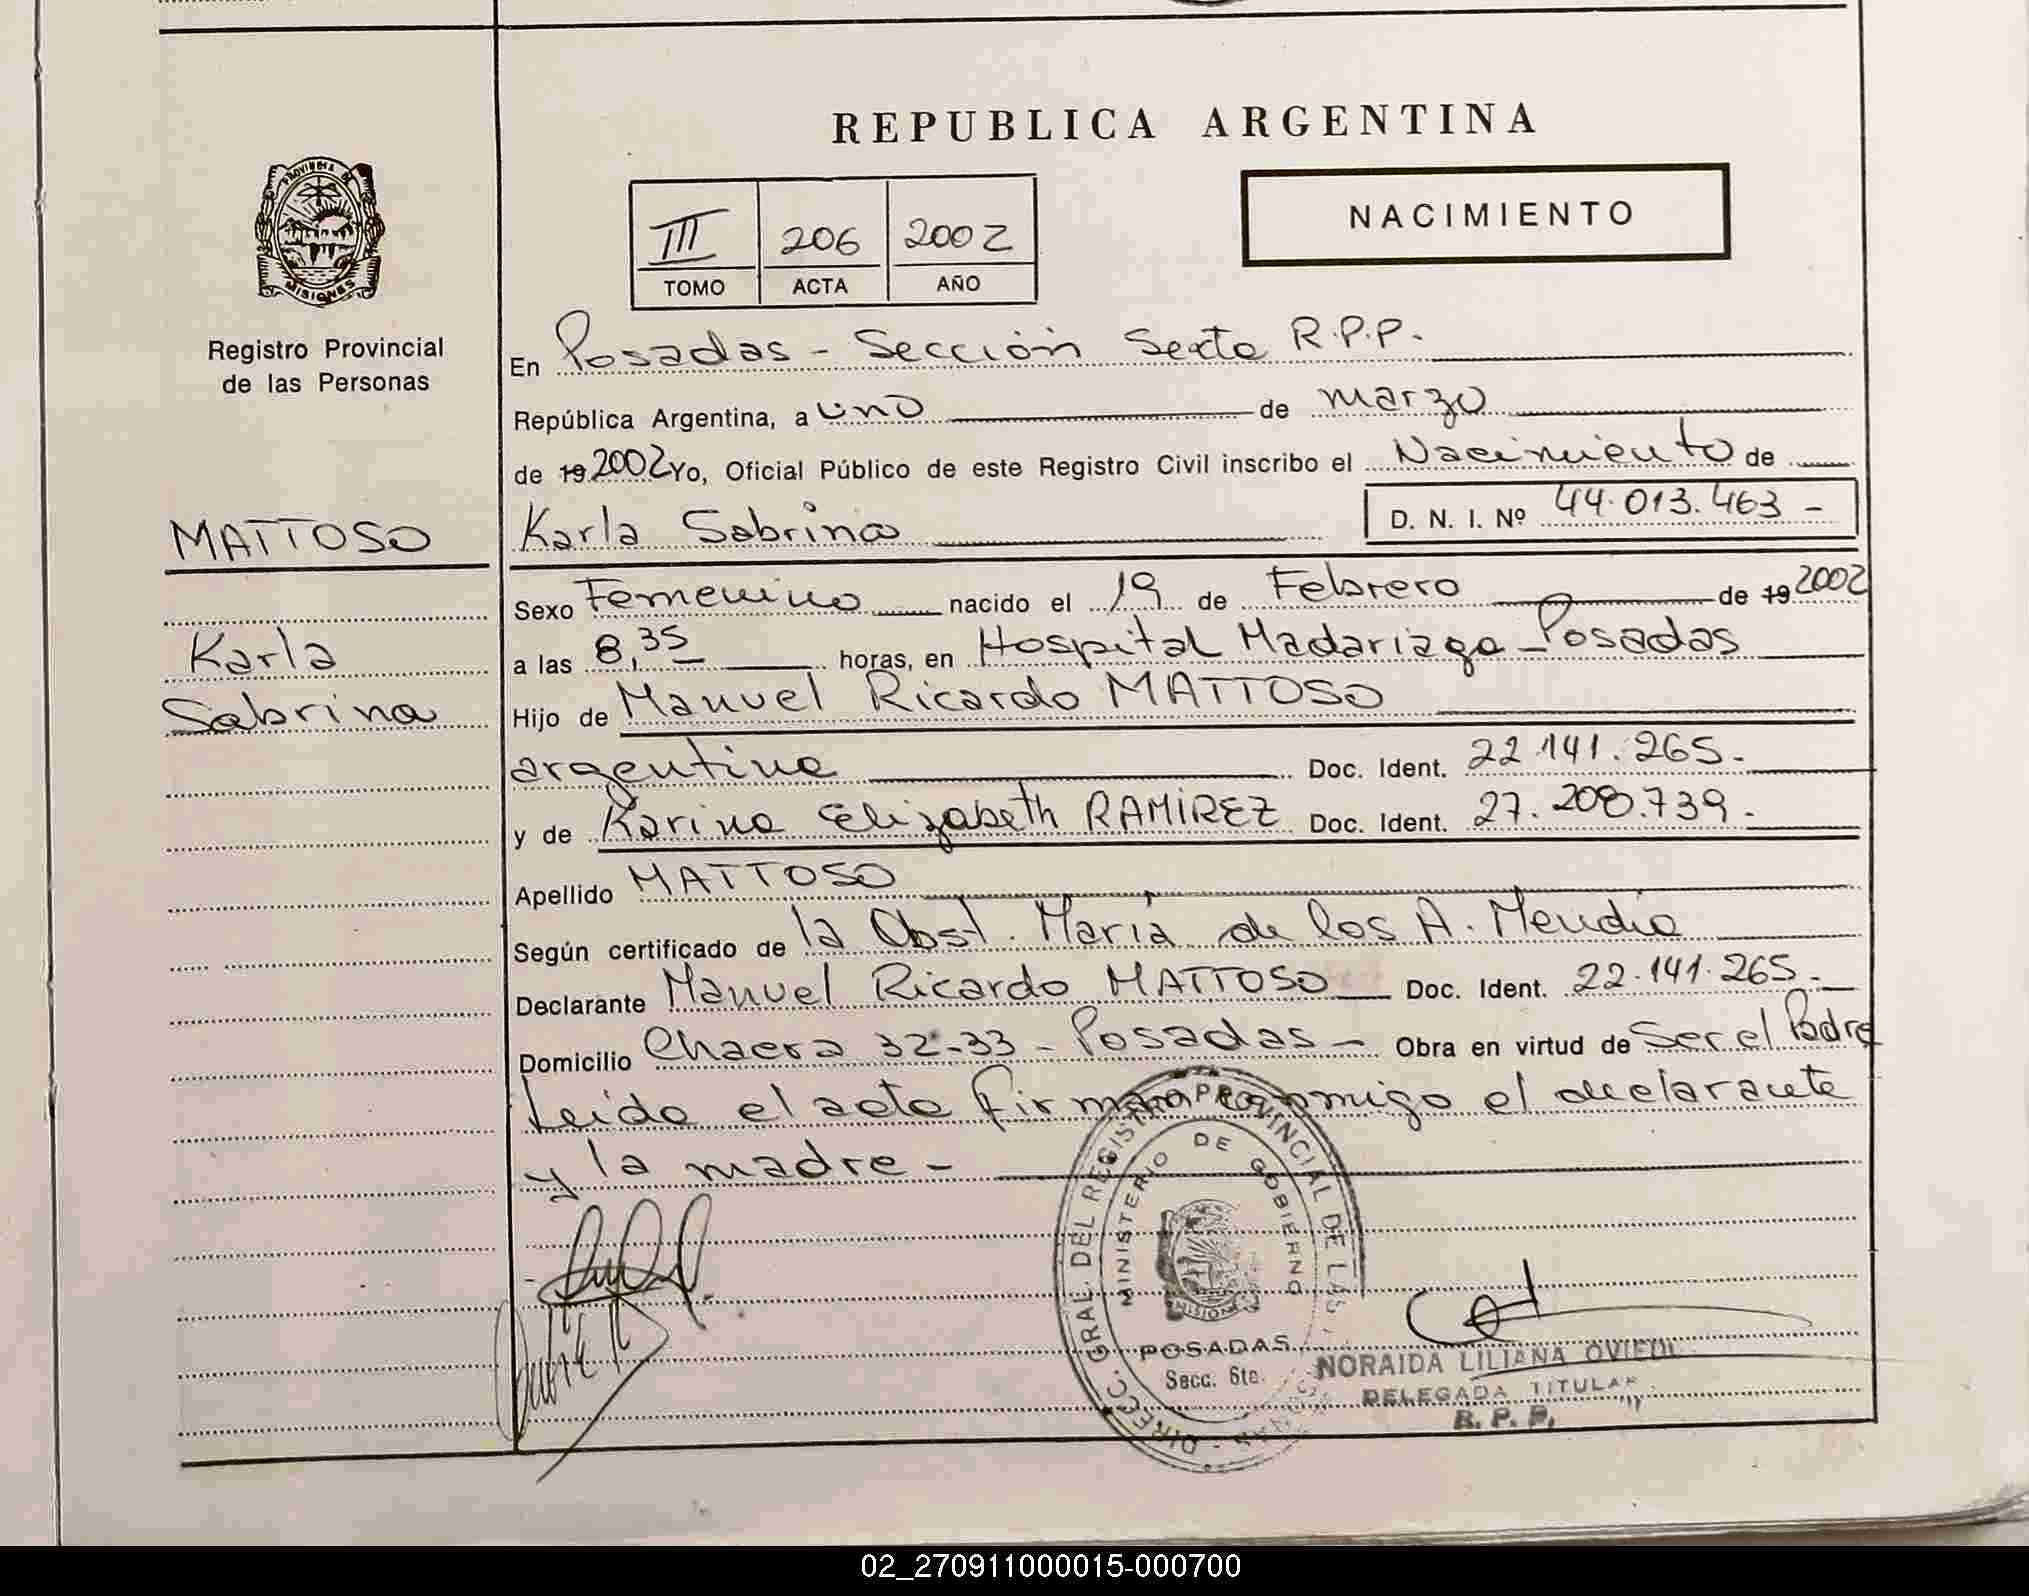 REPUBLICA ARGENTINA
NACIMIENTO
III 206 2002
TOMO ACTA AÑO
PROVINCIA DE
MISIONES
Registro Provincial
de las Personas
MATTOSO
Karla
Sabrina
En Posadas - Sección Sexta R.P.P.
República Argentina, a uno de marzo
de 19 2002 Yo, Oficial Público de este Registro Civil inscribo el Nacimiento de
Karla Sabrina D. N. I. Nº 44.013.463 -
Sexo Femenino nacido el 19 de Febrero de 19 2002
a las 8,35 horas, en Hospital Madariaga - Posadas
Hijo de Manuel Ricardo MATTOSO
argentino Doc. Ident. 22.141.265.-
y de Karina Elizabeth RAMIREZ Doc. Ident. 27.208.739.-
Apellido MATTOSO
Según certificado de la Obst. María de los A. Mendia
Declarante Manuel Ricardo MATTOSO Doc. Ident. 22.141.265.-
Domicilio Chacra 32-33 - Posadas - Obra en virtud de Ser el Padre
Leida el acta firman conmigo el declarante
y la madre -
DIRECC. GRAL. DEL REGISTRO PROVINCIAL DE LAS
MINISTERIO DE GOBIERNO
MISIONES
POSADAS
Secc. 6ta.
NORAIDA LILIANA OVIEDO
DELEGADA TITULAR
R. P. P.
02_270911000015-000700